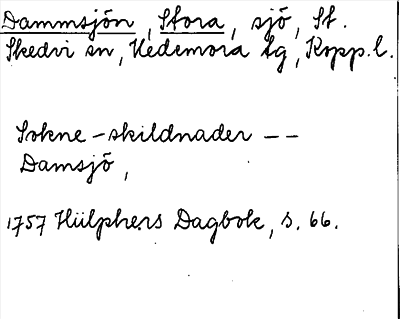 Dammsjön, Stora, sjö, St.
Skedvi sn, Hedemora tg, Kopp.l.
Sokne-skildnader --
Damsjö,
1757 Hülphers Dagbok, s. 66.